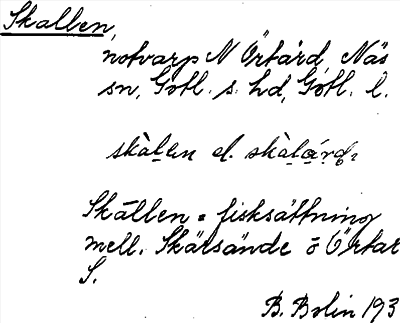 Skallen,
notvarp N Örtård, Näs
sn, Gotl. s. hd, Gotl. l.
skàlen el. skàlård.
Skällen = fisksättning
mell. Skärsände o Örtar
S.
B. Bolin 193